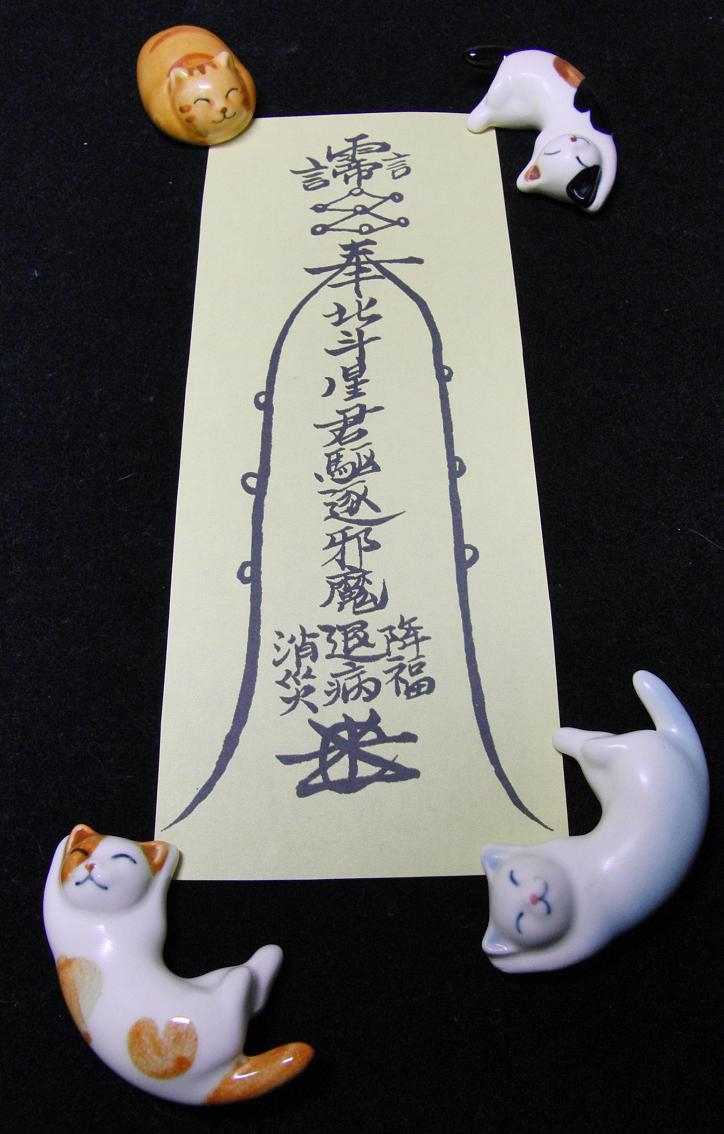 奉
北斗星君驅逐邪魔
降福
退病
消災